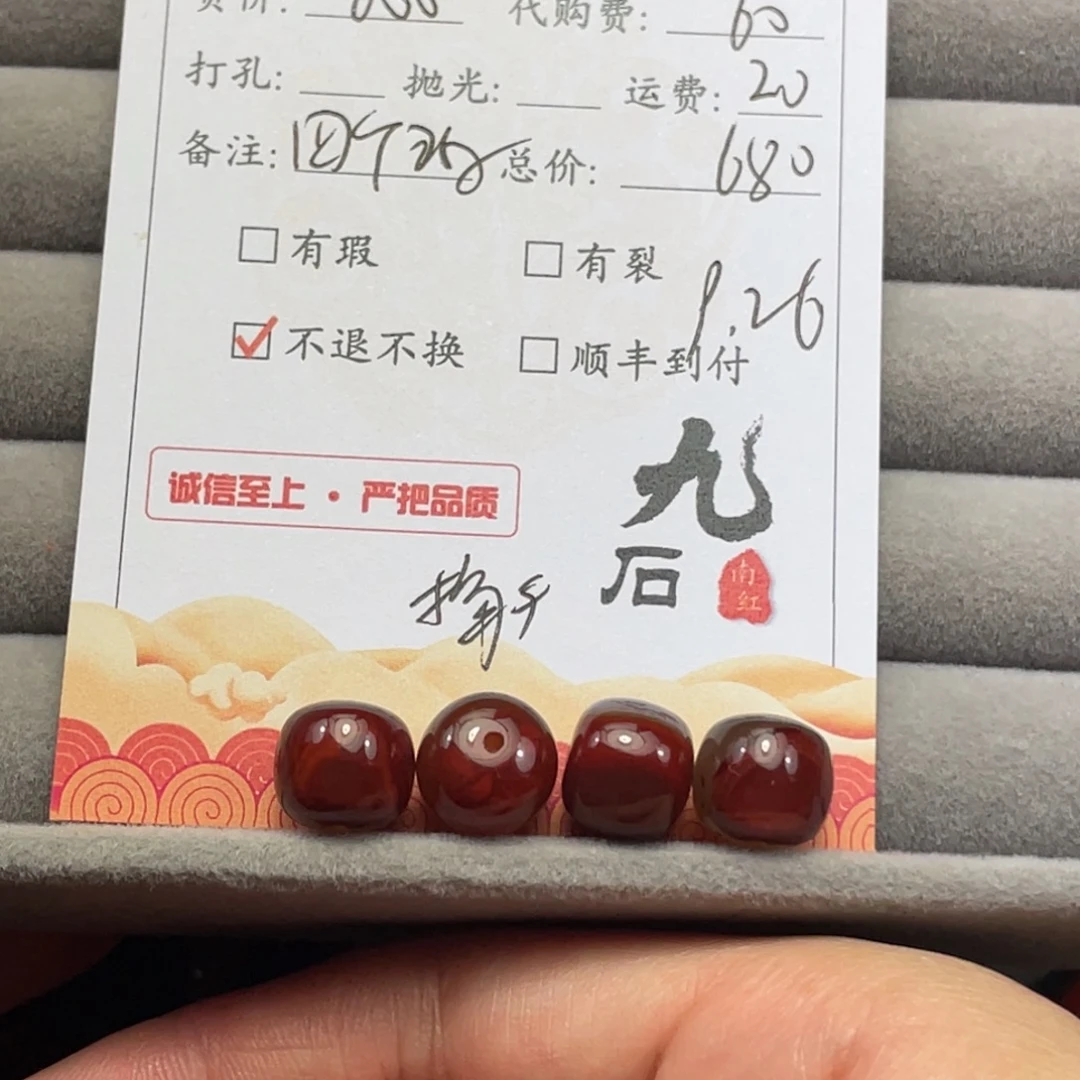 货价: 600 代购费: 60
打孔: 抛光: 运费: 20
备注: 总价: 680
有瑕 有裂
1.26
不退不换 顺丰到付
诚信至上·严把品质
九石
南红